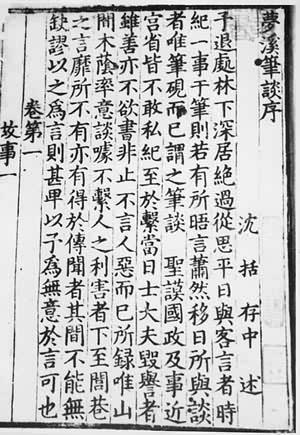 夢溪筆談序
沈括存中述
予退處林下深居絶過從思平日與客言者時
紀一事于筆則若有所晤言蕭然移日所與談
者唯筆硯而已謂之筆談 聖謨國政及事近
宫省皆不敢私紀至於繫當日士大夫毁譽者
雖善亦不欲書非止不言人惡而已所録唯山
間木蔭率意談噱不繫人之利害者下至閭巷
之言靡所不有亦有得於傳聞者其間不能無
缺謬以之爲言則甚卑以予爲無意於言可也
卷第一
故事一